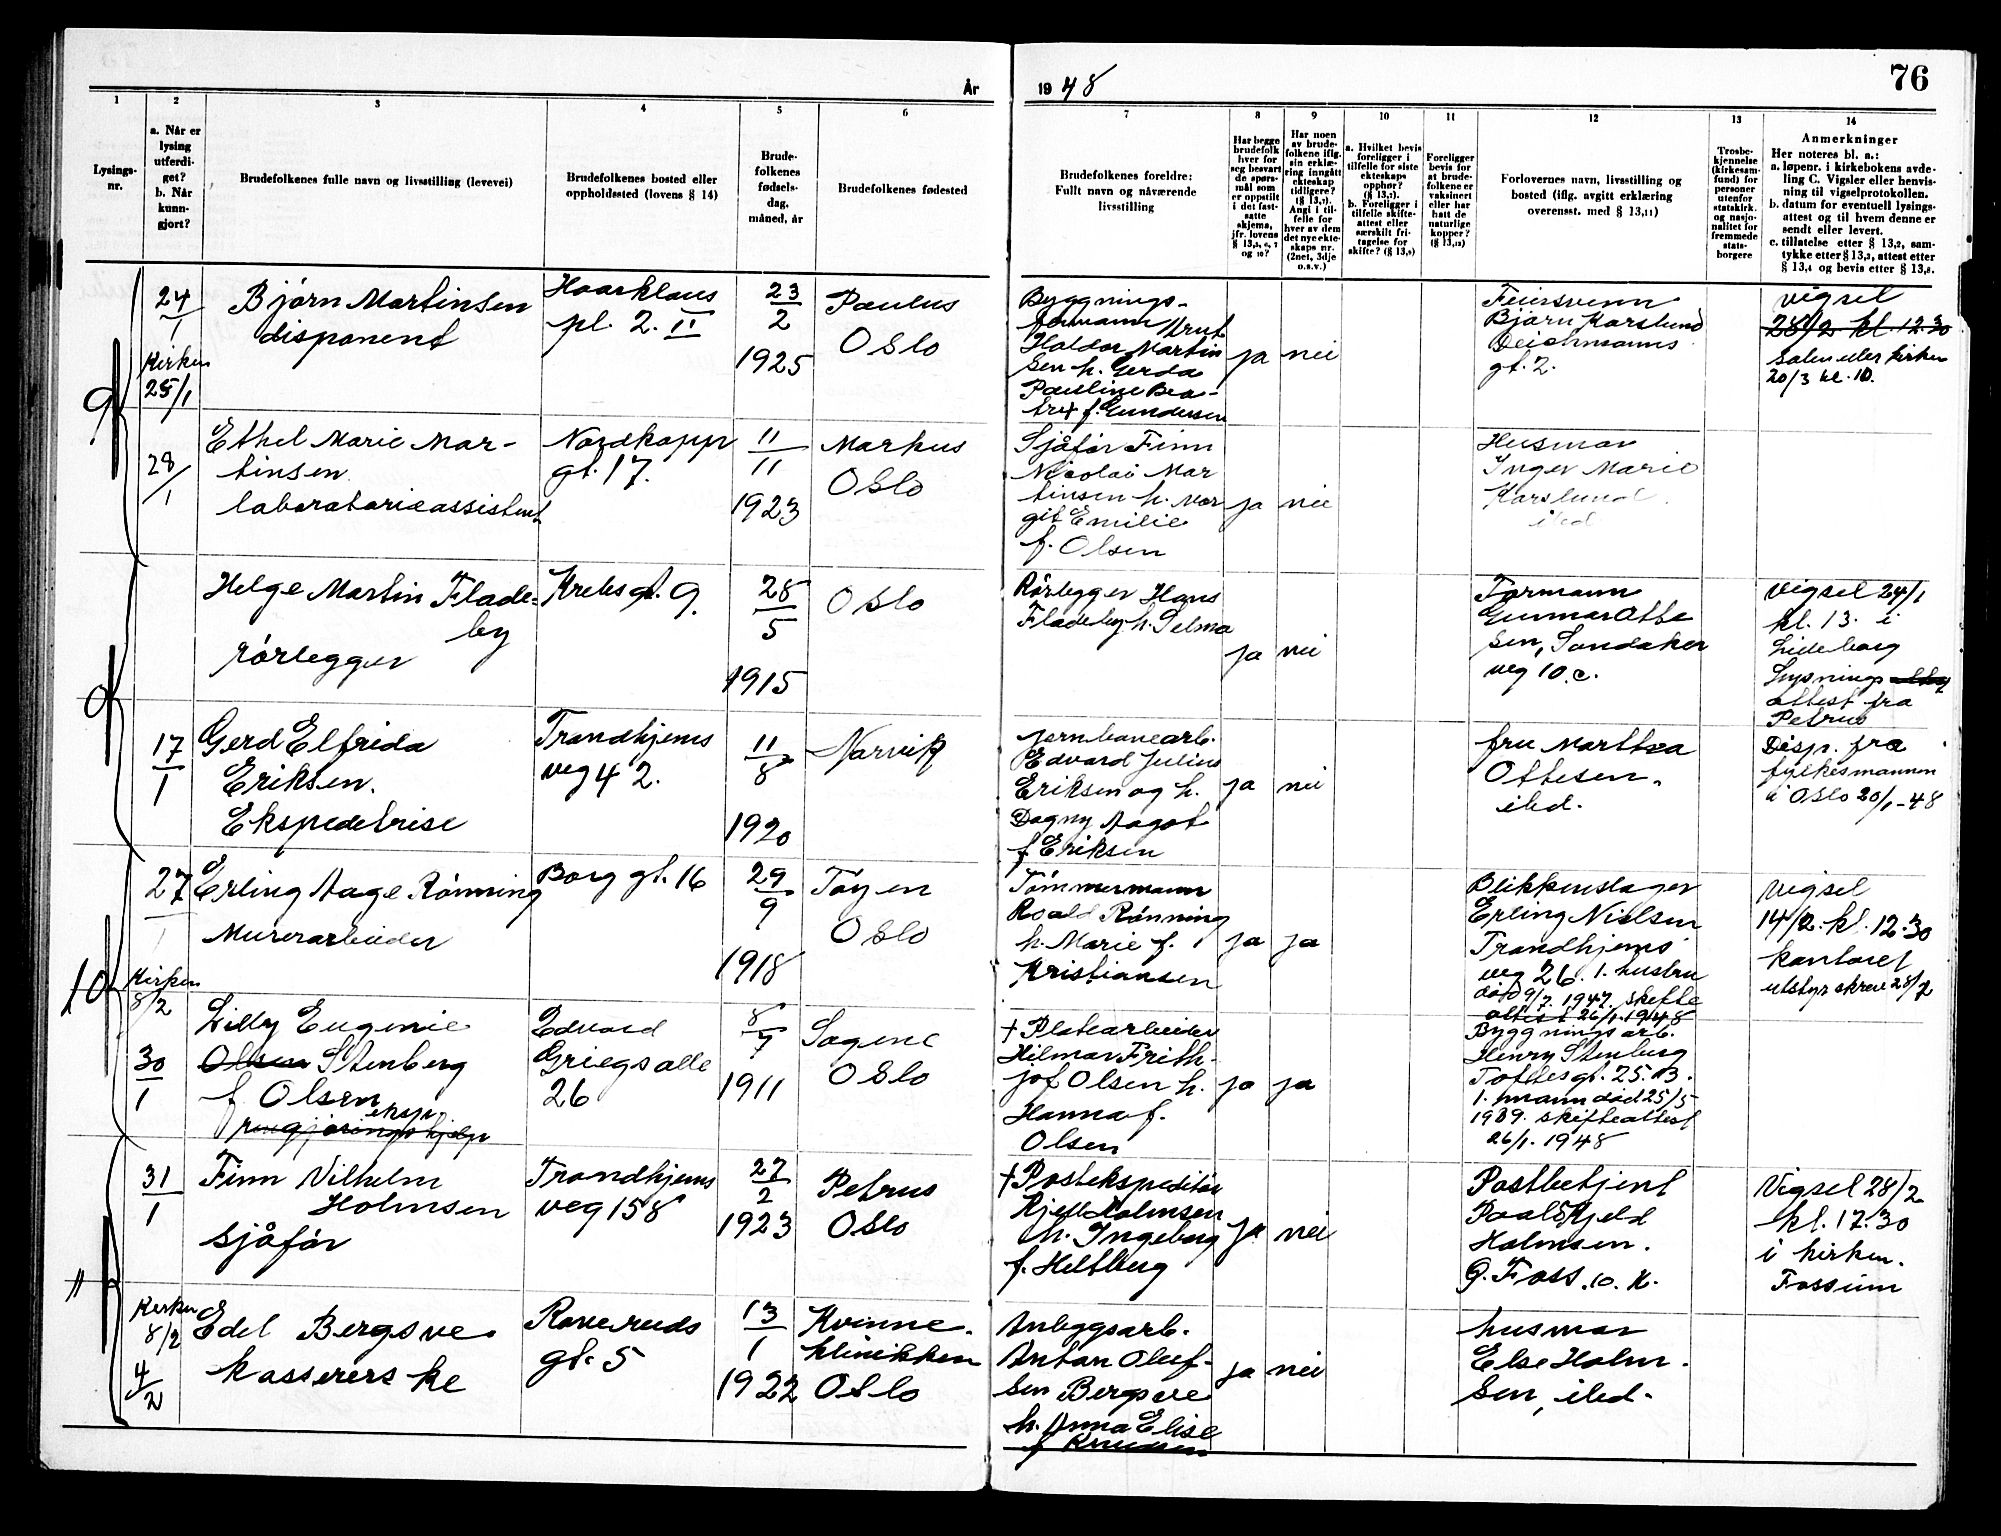 År
19 48
76
1
2
3
4
5
6
7
8
9
10
11
12
13
14
Lysings-
nr.
a. Når er
lysing
utferdi-
get?
b. Når
kunn-
gjort?
Brudefolkenes fulle navn og livsstilling (levevei)
Brudefolkenes bosted eller
oppholdssted (lovens § 14)
Brude-
folkenes
fødsels-
dag,
måned, år
Brudefolkenes fødested
Brudefolkenes foreldre:
Fullt navn og nåværende
livsstilling
Har begge
brudefolk
hver for
seg besvart
de spørs-
mål som
er oppstilt
i det fast-
satte
skjema,
jfr. lovens
§ 13,5, 6, 7
og 10?
Har noen
av brude-
folkene iflg.
sin erklæ-
ring inngått
ekteskap
tidligere?
(§ 13,7).
Angi i til-
felle for
hver av dem
det nye ekte-
skaps nr.
(2net, 3dje
o.s.v.)
a. Hvilket bevis
foreligger i
tilfelle for siste
ekteskaps
opphør?
(§ 13,7).
b. Foreligger i
tilfelle skifte-
attest eller
særskilt fri-
tagelse for
skifte? (§ 13,9)
Foreligger
bevis for
at brude-
folkene er
vaksinert
eller har
hatt de
naturlige
kopper?
(§ 13,12)
Forlovernes navn, livsstilling og
bosted (iflg. avgitt erklæring
overensst. med § 13,11)
Trosbe-
kjennelse
(kirkesam-
fund) for
personer
utenfor
statskirk.
og nasjo-
nalitet for
fremmede
stats-
borgere
Anmerkninger
Her noteres bl. a.:
a. løpenr. i kirkebokens avde-
ling C. Vigsler eller henvis-
ning til vigselprotokollen.
b. datum for eventuell lysings-
attest og til hvem denne er
sendt eller levert.
c. tillatelse etter § 13,2, sam-
tykke etter § 13,3, attest etter
§ 13,4 og bevis etter § 13,8.
9
24/1
Kirken
25/1
Bjørn Martinsen
disponent
Haarklous
pl. 2. II
23/2
1925
Paulus
Oslo
Byggnings-
formann Knut
Haldor Martin
sen h. Gerda
Pauline Bea-
trix f. Gundersen
ja
nei
Feiersvenn
Bjarn Karslund
Deichmanns
gt. 2.
vigsel
28/2 kl. 12.30
Salen eller kirken
20/3 kl. 10.
28/1
Ethel Marie Mar-
tinsen
laboratorieassistent
Nordkapp
gt. 17.
11/11
1923
Markus
Oslo
Sjåfør Finn
Nicolai Mar
tinsen h. Mar
git Emilie
f. Olsen
ja
nei
Husmor
Inger Marie
Karslund
ibd
9
Helge Martin Flade-
by
rørlegger
Krebsgt. 9.
28/5
1915
Oslo
Rørlegger Hans
Fladeby h. Selma
ja
nei
Formann
Gunnar Otte
sen, Sandaker
veg 10 c.
Vigsel 24/1
kl. 13. i
Lilleborg
Lysnings
attest fra
Petrus
17/1
Gerd Elfrida
Eriksen.
Ekspeditrise
Trondhjems
veg 42.
11/8
1920
Narvik
jernbanearb.
Edvard Julius
Eriksen og h.
Dagny Aagot
f Eriksen
ja
nei
fru Marthea
Ottesen.
ibd.
Disp. fra
fylkesmannen
i Oslo 20/1-48
10
27/1
Kirken
8/2
Erling Aage Rønning
Murerarbeider
Borg gt. 16
29/9
1918
Tøyen
Oslo
Tømmermann
Roald Rønning
h. Marie f.
Kristiansen
ja
ja
Blikkenslager
Erling Nielsen
Trondhjems
veg 26. 1. hustru
død 9/7. 1947. skifte
attest 26/1.1948
Vigsel
14/2. kl. 12.30
kontoret
utstyr skrevet 28/2
30/1
Lilly Eugenie
Olsen Stenberg
f. Olsen
eksp.
rengjøringshjelp
Edvard
Griegs alle
26
8/7
1911
Sagene
Oslo
+ Platearbeider
Hilmar Frith-
jof Olsen h.
Hanna f.
Olsen
ja
ja
Byggningsarb.
Henry Stenberg
Toftesgt. 25. B.
1. mann død 25/5-
1939. skifteattest
26/1. 1948
11
31/1
Finn Vilhelm
Holmsen
sjåfør
Trondhjems
veg 158
27/2
1923
Petrus
Oslo
+ Postekspeditør
Kjell Holmsen
h. Ingeborg
f. Heltberg
ja
nei
Postbetjent
Paal Kjeld
Holmsen.
G. Foss. 10. K.
Vigsel 28/2
kl. 17.30
i kirken.
Fossum
Kirken
8/2
4/2
Edel Bergsve
kassererske
Roveruds
gt. 5
13/1
1922
Kvinne-
klinikken
Oslo
Anleggsarb.
Anton Oluf-
sen Bergsve
h. Anna Elise
f Knudsen
ja
nei
husmor
Else Holm-
sen, ibd.